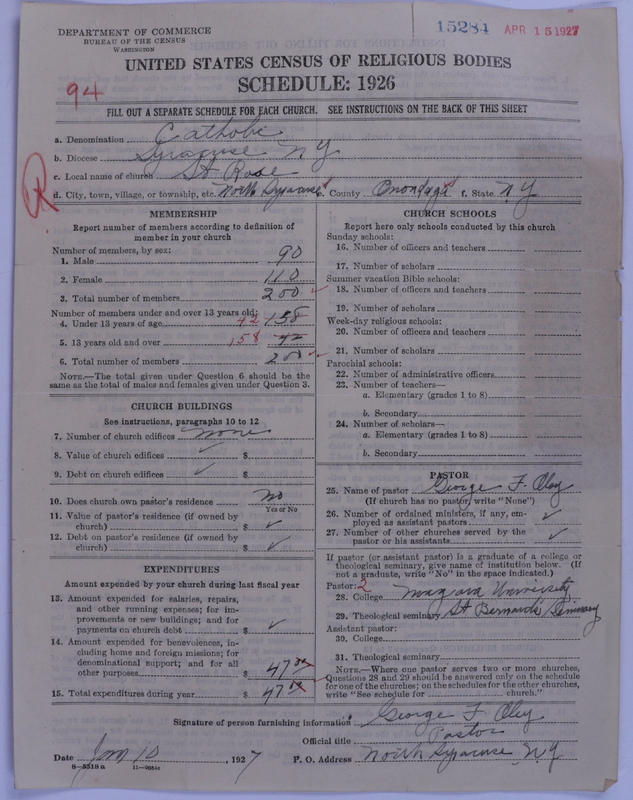 DEPARTMENT OF COMMERCE
BUREAU OF THE CENSUS
WASHINGTON
15284 APR 15 1927
UNITED STATES CENSUS OF RELIGIOUS BODIES
SCHEDULE: 1926
94
FILL OUT A SEPARATE SCHEDULE FOR EACH CHURCH. SEE INSTRUCTIONS ON THE BACK OF THIS SHEET
a. Denomination Catholic
b. Diocese Syracuse N Y
c. Local name of church St Rose
d. City, town, village, or township, etc. North Syracuse e. County Onondaga f. State N.Y
MEMBERSHIP
Report number of members according to definition of
member in your church
Number of members, by sex:
1. Male 90
2. Female 110
3. Total number of members 200
Number of members under and over 13 years old:
4. Under 13 years of age 42 158
5. 13 years old and over 158 42
6. Total number of members 200
NOTE.—The total given under Question 6 should be the
same as the total of males and females given under Question 3.
CHURCH BUILDINGS
See instructions, paragraphs 10 to 12
7. Number of church edifices none
8. Value of church edifices $
9. Debt on church edifices $
10. Does church own pastor's residence No
Yes or No
11. Value of pastor's residence (if owned by
church) $
12. Debt on pastor's residence (if owned by
church) $
EXPENDITURES
Amount expended by your church during last fiscal year
13. Amount expended for salaries, repairs,
and other running expenses; for im-
provements or new buildings; and for
payments on church debt $
14. Amount expended for benevolences, in-
cluding home and foreign missions; for
denominational support; and for all
other purposes $ 47 00
15. Total expenditures during year $ 47 00
CHURCH SCHOOLS
Report here only schools conducted by this church
Sunday schools:
16. Number of officers and teachers
17. Number of scholars
Summer vacation Bible schools:
18. Number of officers and teachers
19. Number of scholars
Week-day religious schools:
20. Number of officers and teachers
21. Number of scholars
Parochial schools:
22. Number of administrative officers
23. Number of teachers—
a. Elementary (grades 1 to 8)
b. Secondary
24. Number of scholars—
a. Elementary (grades 1 to 8)
b. Secondary
PASTOR
25. Name of pastor George F. Oley
(If church has no pastor, write "None")
26. Number of ordained ministers, if any, em-
ployed as assistant pastors
27. Number of other churches served by the
pastor or his assistants
If pastor (or assistant pastor) is a graduate of a college or
theological seminary, give name of institution below. (If
not a graduate, write "No" in the space indicated.)
Pastor: 2
28. College Niagara University
29. Theological seminary St Bernards Seminary
Assistant pastor:
30. College
31. Theological seminary
NOTE.—Where one pastor serves two or more churches,
Questions 28 and 29 should be answered only on the schedule
for one of the churches; on the schedules for the other churches,
write "See schedule for church."
Signature of person furnishing information George F Oley
Official title Pastor
Date Jan 10, 1927 P. O. Address North Syracuse N.Y.
8—5518 a